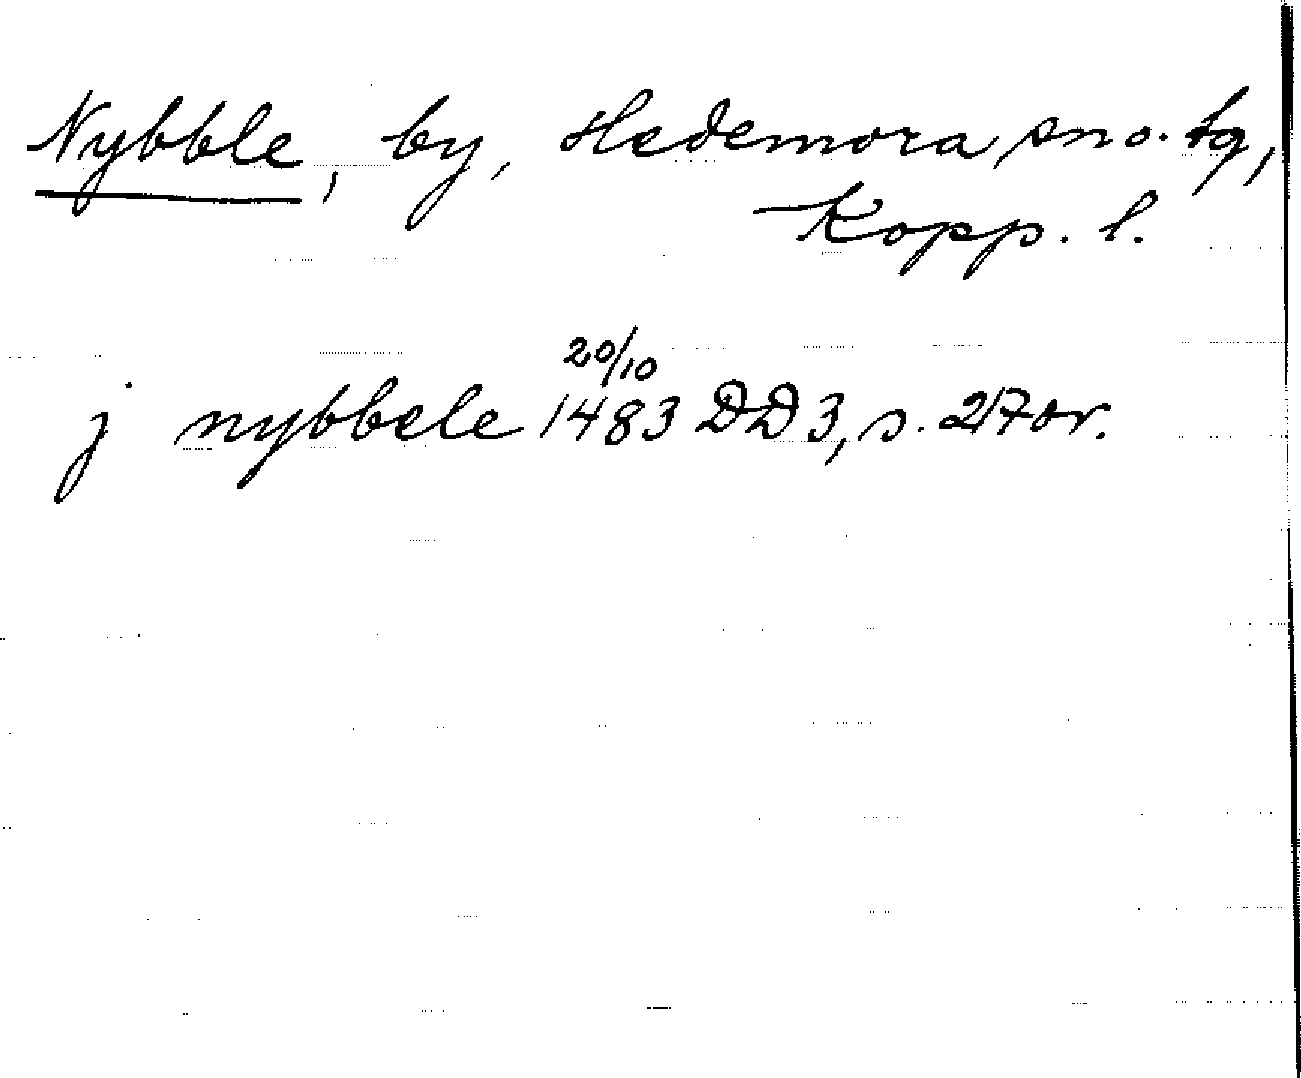 Nybble, by, Hedemora sn o. tg,
Kopp. l.
20/10
j nybbele 1483 DD 3, s. 27 or.